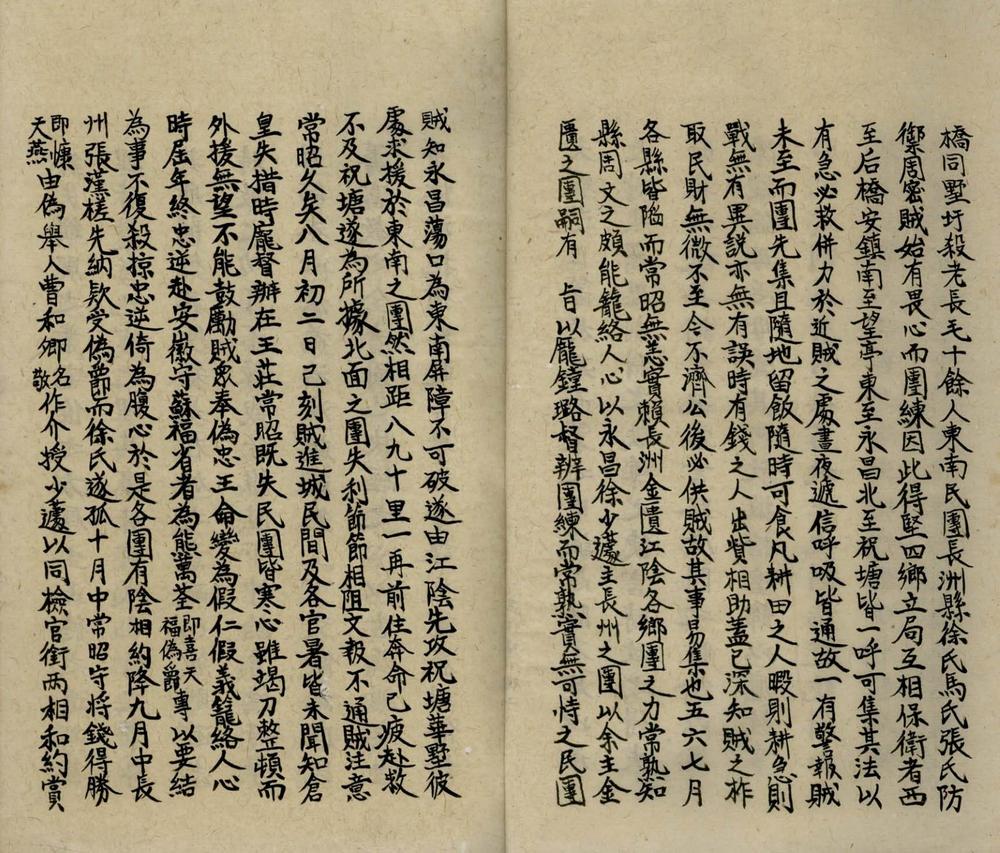 橋同墅圩殺老長毛十餘人東南民團長洲縣徐氏馬氏張氏防
禦周密賊始有畏心而團練因此得堅四鄉立局互相保衛者西
至后橋安鎮南至望亭東至永昌北至祝塘皆一呼可集其法以
有急必救併力於近賊之處晝夜遞信呼吸皆通故一有警報賊
未至而團先集且隨地留飯隨時可食凡耕田之人暇則耕急則
戰無有異説亦無有誤時有錢之人出貲相助蓋已深知賊之作
取民財無微不至今不濟公後必供賊故其事易集也五六七月
各縣皆陷而常昭無恙實賴長洲金匱江陰各鄉團之力常熟知
縣周文之頗能籠絡人心以永昌徐少蘧主長州之團以余主金
匱之團嗣有 旨以龐鐘璐督辦團練而常熟實無可恃之民團
賊知永昌蕩口為東南屏障不可破遂由江陰先攻祝塘華墅彼
處求援於東南之團然相距八九十里一再前往奔命已疲赴救
不及祝塘遂為所據北面之團失利節節相阻文報不通賊注意
常昭久矣八月初二日己刻賊進城民間及各官署皆未聞知倉
皇失措時龐督辦在王莊常昭既失民團皆寒心雖竭力整頓而
外援無望不能鼓勵賊眾奉偽忠王命變為假仁假義籠絡人心
時屆年終忠逆赴安徽守蘇福省者為熊萬荃即喜天福偽爵專以要結
為事不復殺掠忠逆倚為腹心於是各團有陰相約降九月中長
州張漢槎先納款受偽爵而徐氏遂孤十月中常昭守將錢得勝
即慷天燕由偽舉人曹和卿名敬作介授少蘧以同檢官銜兩相和約賞